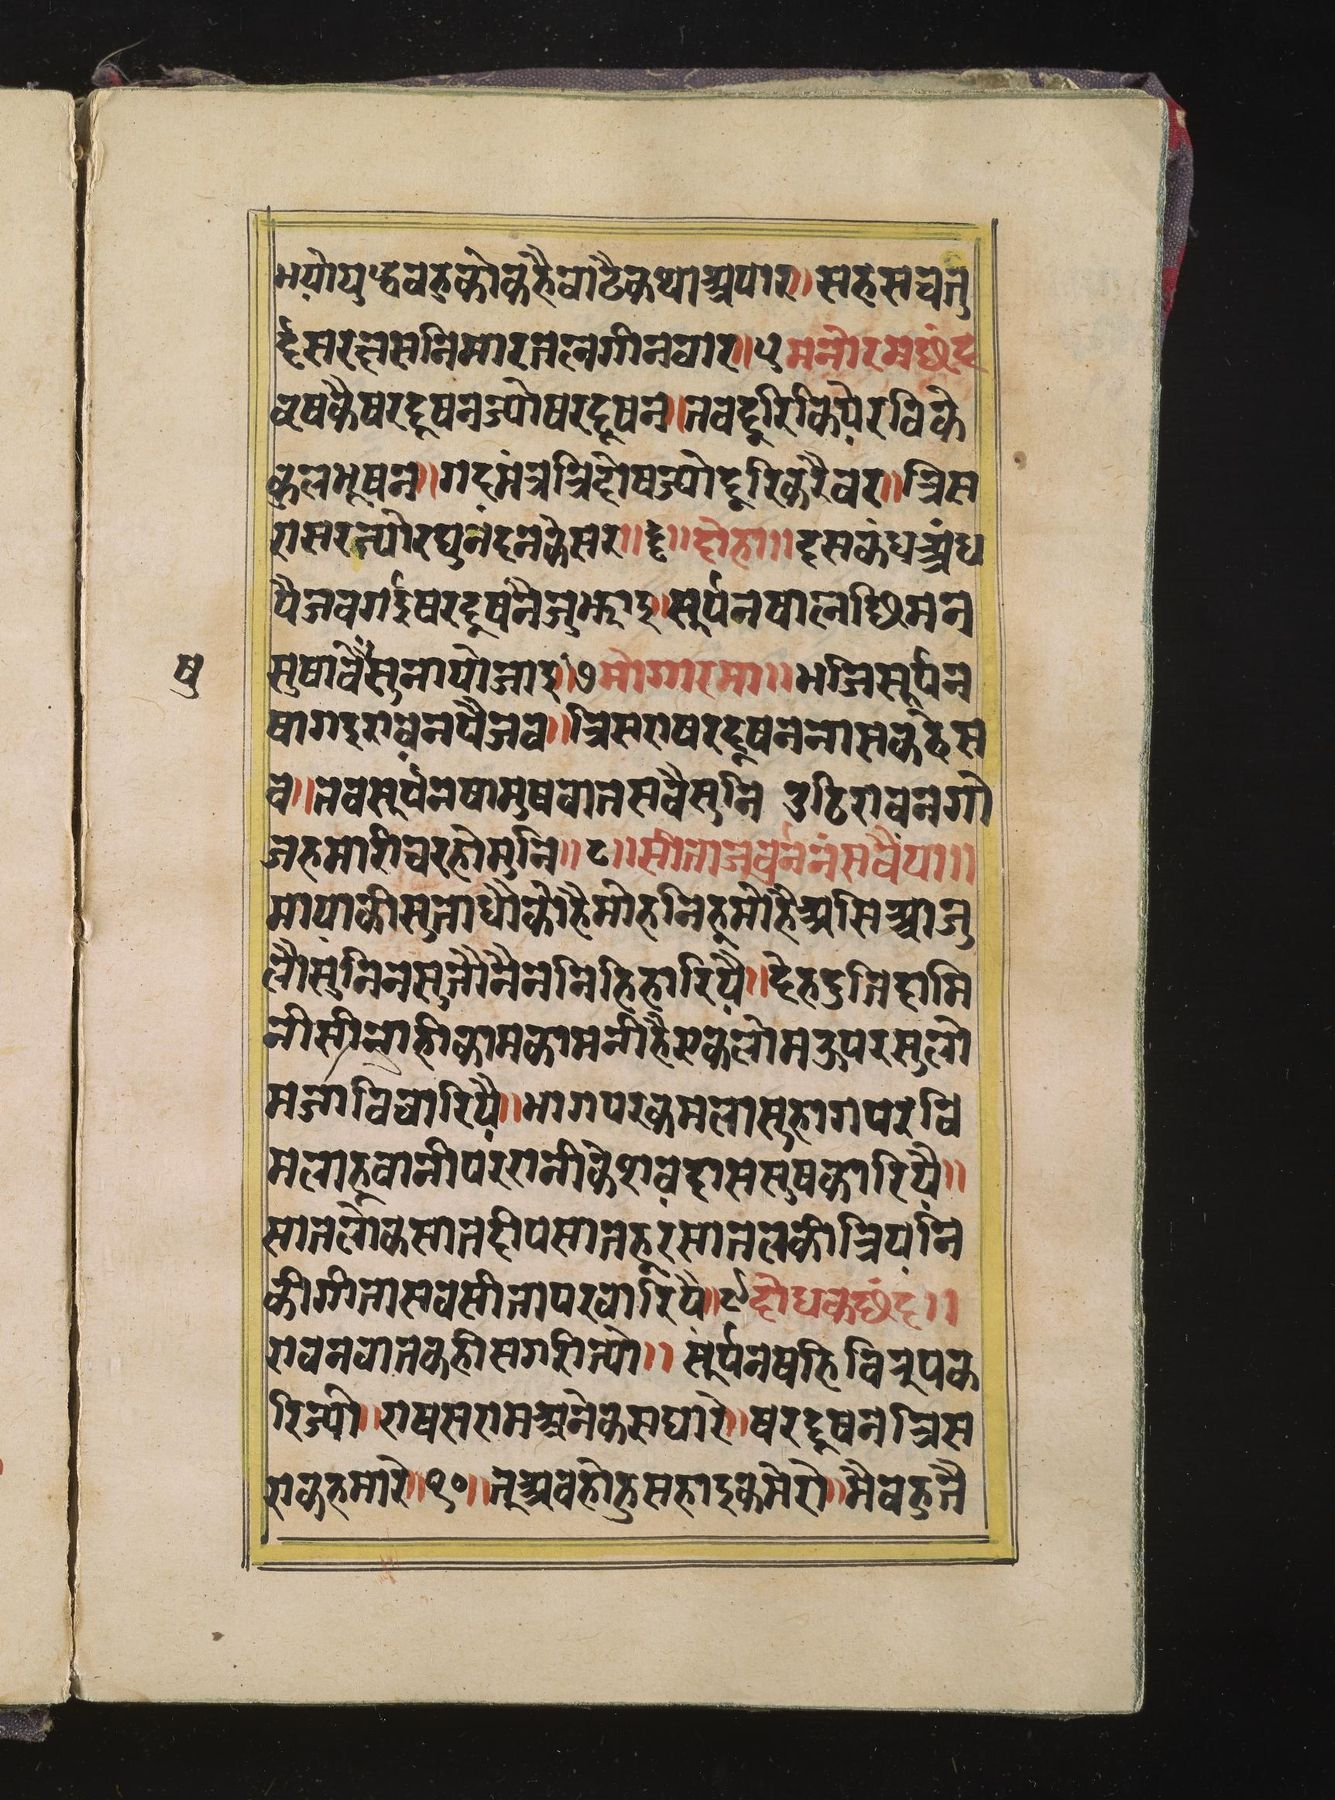 भयोयुध्दबहुकोकहैबाढैकथाअपार॥सहसचतु
र्दसरछसनिमारतलगीनबार॥५मनोरमछंद
बृषकैषरदूषनज्योषरदूषन॥तबदूरिकियेरविके
कुलभूषन॥गदमंत्रत्रिदोषज्योदूरिकरैवर॥त्रिस
रासरत्योरघुनंदनकेसर॥६॥दोहा॥दसकंधअंध
पैजबगईषरदूषनैजुझाइ॥सूर्पनषालछिमन
सुषावैसुनायोजाइ॥७मोगारमा॥भजिसूर्पन
षु
षागइरावनपैजब॥त्रिसराषरदूषननासकहेस
ब॥तबसूर्पनषामुषबातसबैसुनि उठिरावनगौ
जहमारीचरहोमुनि॥८॥सीताजूबर्ननंसवैया॥
मायाकीसुताधौकोहैमोहनिहूमोहैअसिआजु
लौसुनिनसुनौनैननिहिहारियै॥देहदुतिदामि
नीसीलाहीकामकामनीहैएकलोमउपरसुलो
मजाविचारियै॥भागपरकमलासुहागपरवि
मलाहूबानीपररानीकेशवदाससुषकारियै॥
सातलोकसातदीपसातहूरसातलकीत्रियनि
कीगीतासबसीतापरवारियै॥९दोधकछंद॥
रावनबातकहीसगरीत्यो॥सूर्पनषहिविरूपक
रिज्यो॥राषसरामअनेकसघारे॥षरदूषनत्रिस
राकहमारे॥१०॥तूअबहोहुसहाइकमेरो॥मैबहुतै